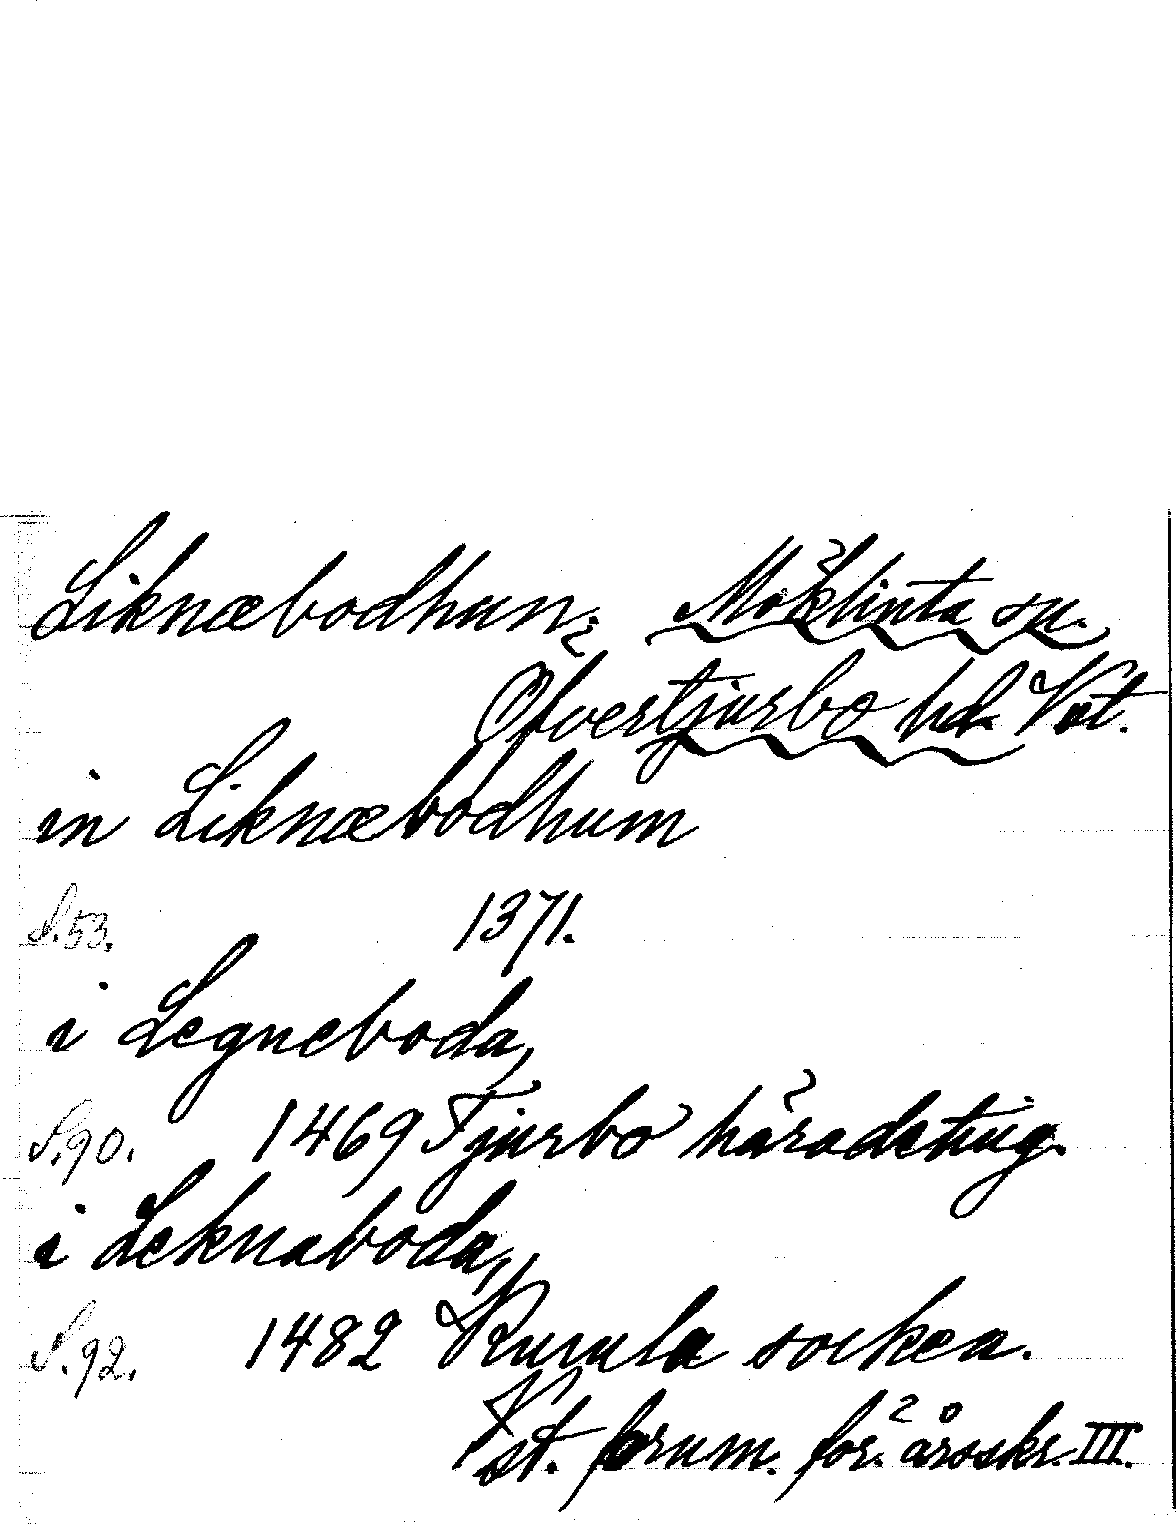 Liknæbodhun; Möklinta sn.
Øfvertjurbo hd. Vst.
in Liknæbodhum
S.53. 1371.
i Legneboda,
S.90. 1469 Tjurbo häradsting.
i Leknaboda,
S.92. 1482 Rumla socken.
Vst. fornm. för. årsskr. III.